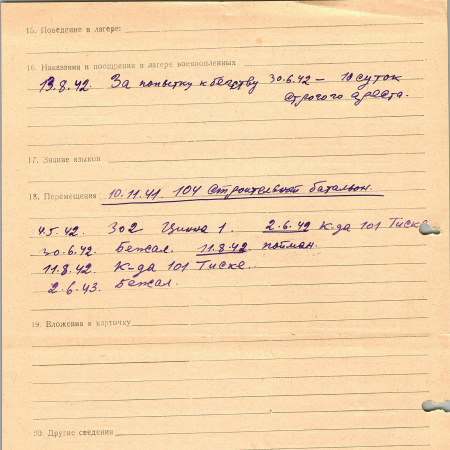 15. Поведение в лагере:
16. Наказания и поощрения в лагере военнопленных
13.8.42. За попытку к бегству 30.6.42 – 10 суток
строгого ареста.
17. Знание языков
18. Перемещения 10.11.41. 104 строительный батальон.
4.5.42. 302 Цинна 1. 2.6.42 К-да 101 Тиске
30.6.42. Бежал. 11.8.42 пойман.
11.8.42. К-да 101 Тиске.
2.6.43. Бежал.
19. Вложения в карточку
20. Другие сведения